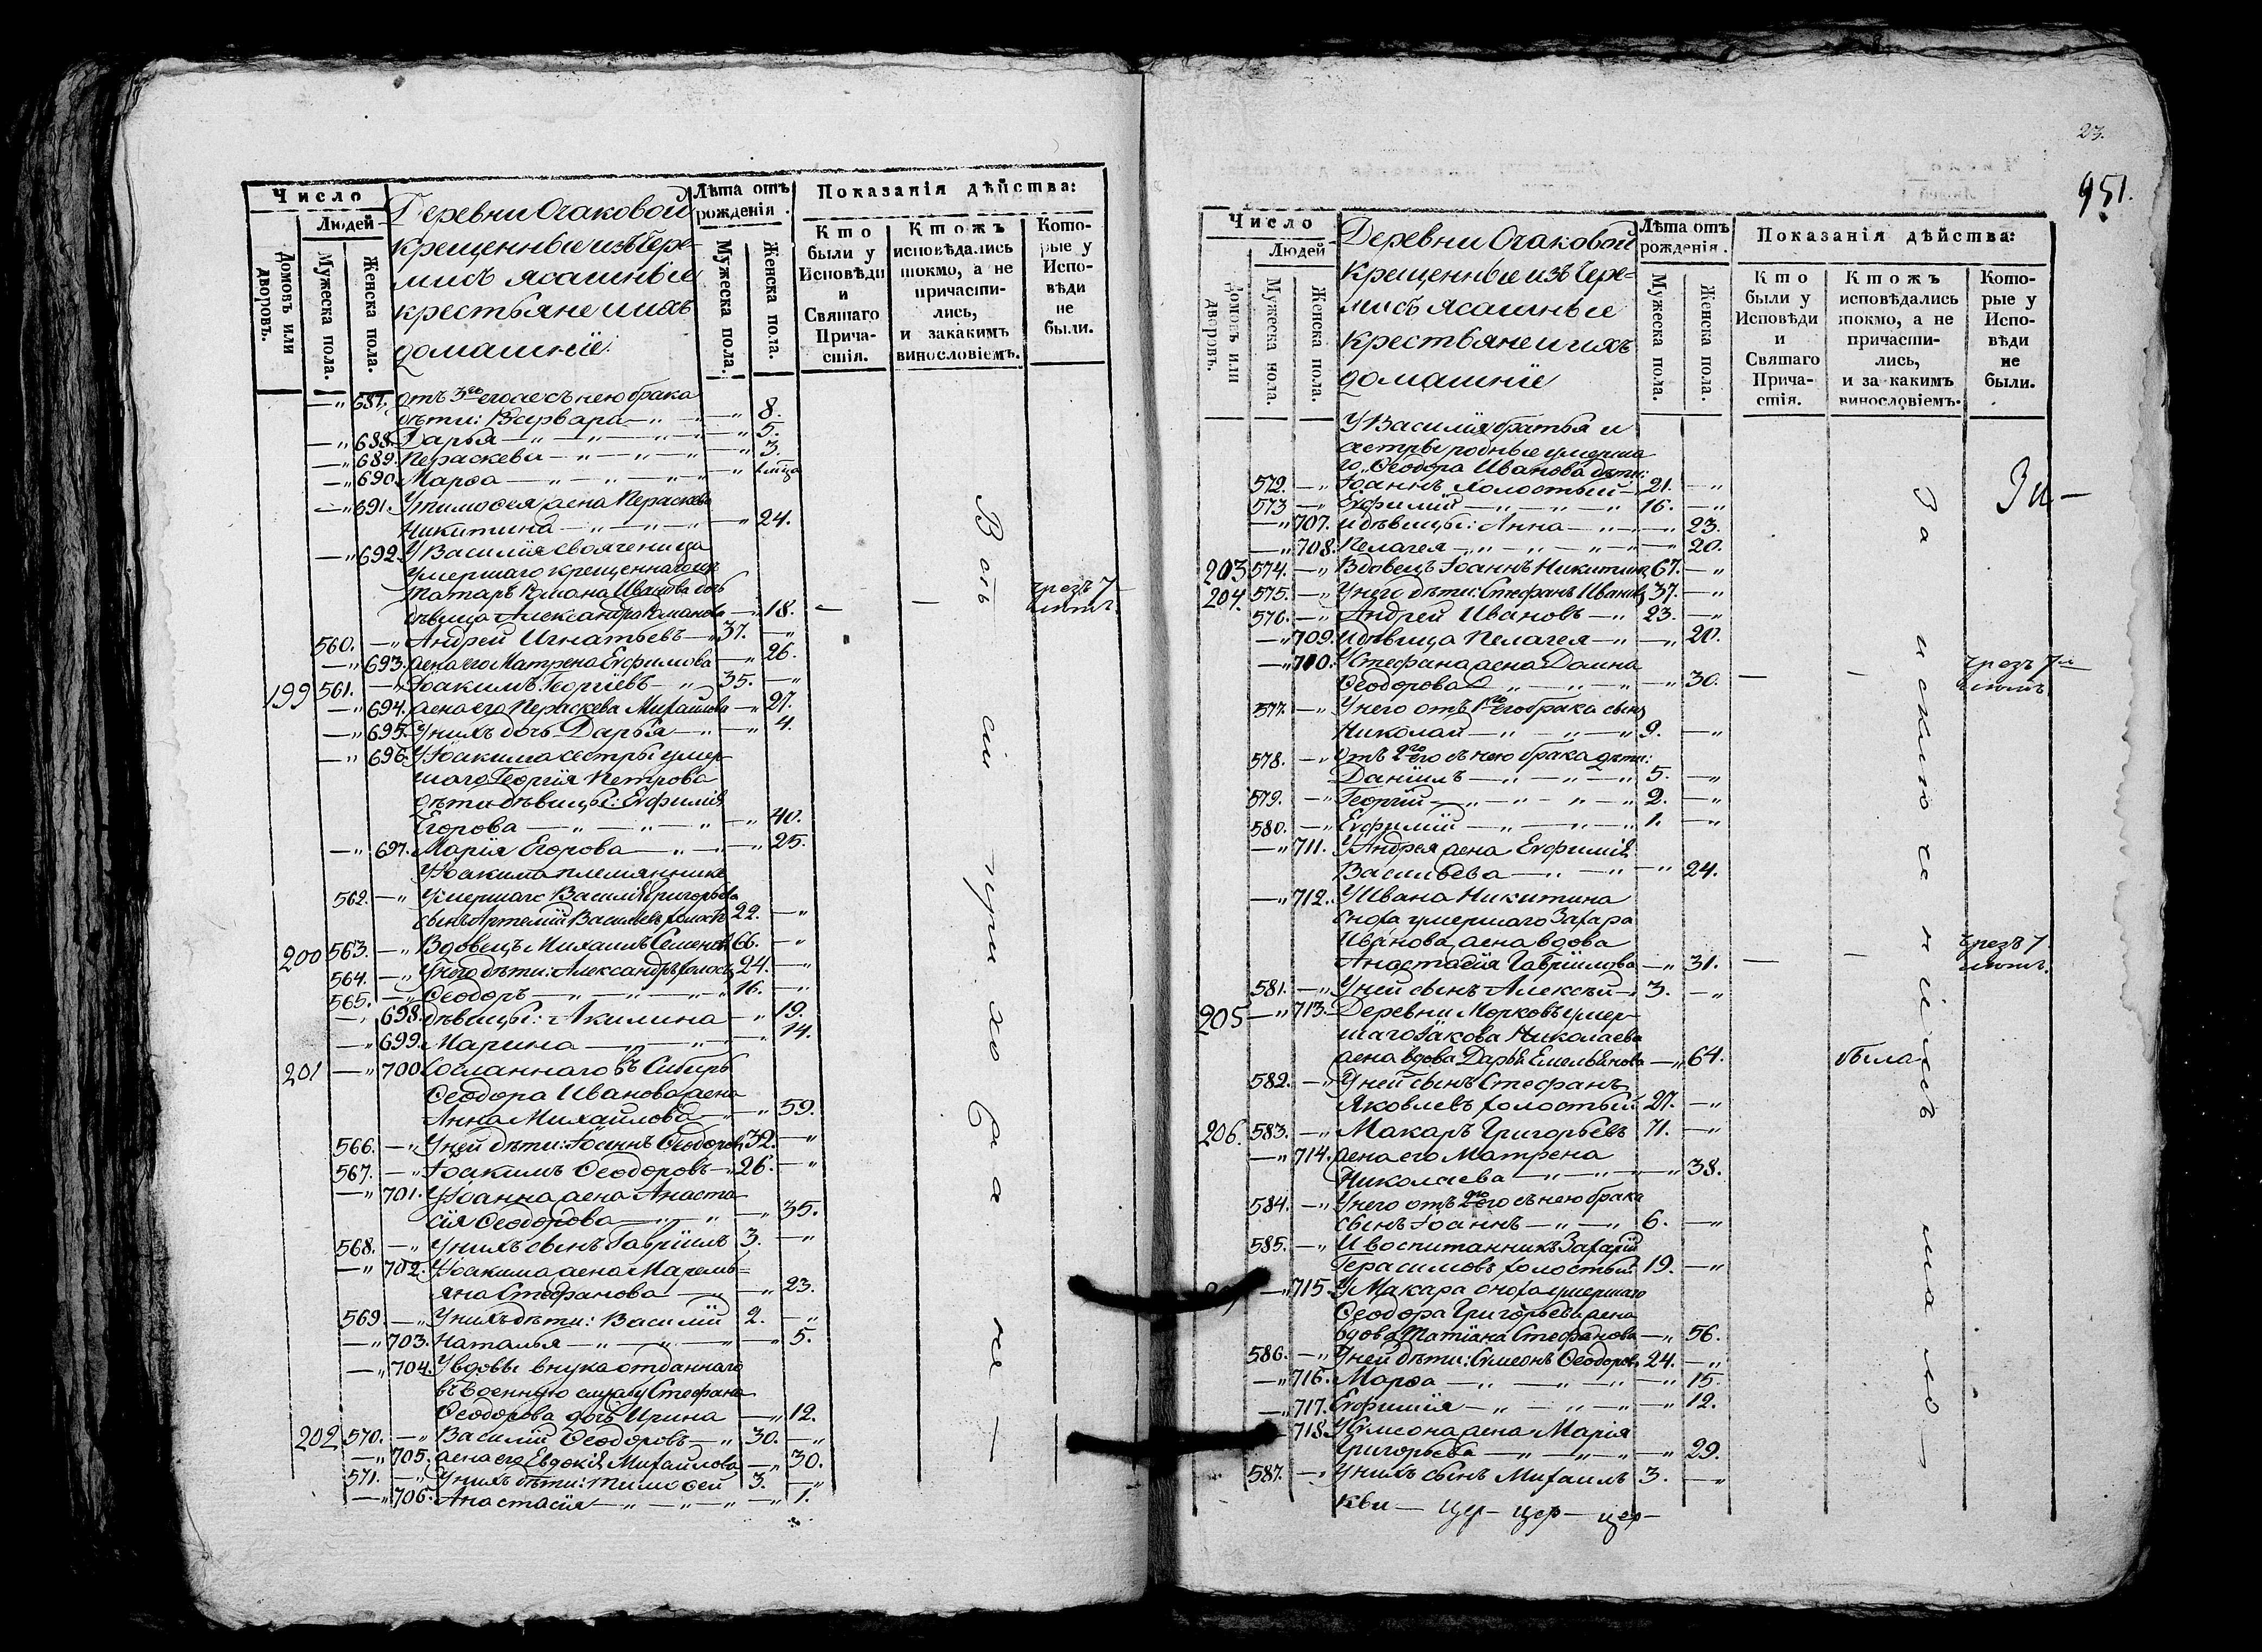 Число
Людей
Домовъ или дворовъ.
Мужеска пола.
Женска пола.
Деревни Очаковой
крещенные изъ Чере-
мисъ ясашные
крестьяне и ихъ
домашнiе:
Лѣта отъ рожденiя.
Мужеска пола.
Женска пола.
Показанiя дѣйства:
Кто были у Исповѣди и Святаго Прича-стiя.
Ктожъ исповѣдались токмо, а не причасти-лись, и за какимъ винословiемъ.
Кото-рые у Испо-вѣди не были.
—„ 687. отъ 3го его съ нею брака
дѣти: Варвара —„ 8.
—„ 688. Дарья —„—„—„ 5.
—„ 689. Параскева —„—„—„ 3.
—„ 690. Марѳа —„—„—„
—„ 691. У Тимоѳея жена Параскева
Никитина —„—„—„ 24.
—„ 692. У Василiя свояченица
умершаго крещеннаго изъ
татаръ Романа Иванова дочь
дѣвица Александра Романова —„ 18. — — чрезъ 7 лѣтъ
560. —„ Андрей Игнатьевъ —„ 37. —„
—„ 693. жена его Матрена Евфимова —„ 26.
199 561. —„ Iоакимъ Георгiевъ —„ 35. —„
—„ 694. жена его Параскева Михайлова —„ 27.
—„ 695. У нихъ дочь Дарья —„—„ 4.
—„ 696. У Iоакима сестры умер-
шаго Георгiя Петрова
дѣти дѣвицы: Евфимiя
Егорова —„—„—„ 40.
—„ 697. Марiя Егорова —„—„ 25.
У Iоакима племянника
562. —„ умершаго Василiя Григорьева
сынъ Артемiй Васильевъ холостъ 22. —„
200 563. —„ Вдовецъ Михаилъ Семеновъ 66. —„
564. —„ У него дѣти: Александръ холостъ 24. —„
565. —„ Ѳеодоръ —„—„—„ 16. —„
—„ 698. дѣвицы: Акилина —„ 19.
—„ 699. Марина —„—„—„ 14.
201 —„ 700. Сосланнаго въ Сибирь
Ѳеодора Иванова жена
Анна Михайлова —„—„ 59.
566. —„ У ней дѣти: Iоаннъ Ѳеодоровъ 32. —„
567. —„ Iоакимъ Ѳеодоровъ —„ 26. —„
—„ 701. У Iоанна жена Анаста-
сiя Ѳеодорова —„—„ 35.
568. —„ У нихъ сынъ Гаврiилъ 3. —„
—„ 702. У Iоакима жена Маремь-
яна Стефанова —„ 23.
569. —„ У нихъ дѣти: Василiй 2. —„
—„ 703. Наталья —„—„ 5.
—„ 704. У вдовы внука отданнаго
въ военную службу Стефана
Ѳеодорова дочь Ирина —„ 12.
202 570. —„ Василiй Ѳеодоровъ —„ 30. —„
—„ 705. жена его Евдокiя Михайлова —„ 30.
571. —„ У нихъ дѣти: Тимоѳей 3. —„
—„ 706. Анастасiя —„—„—„ 1.
Во ть сiи при хо
23.
951.
Число
Людей
Домовъ или дворовъ.
Мужеска пола.
Женска пола.
Деревни Очаковой
Крещенные изъ Чере-
мисъ ясашные
Крестьяне и ихъ
домашнiе
Лѣта отъ рожденiя.
Мужеска пола.
Женска пола.
Показанiя дѣйства:
Кто были у Исповѣди и Святаго Прича-стiя.
Ктожъ исповѣдались токмо, а не причасти-лись, и за какимъ винословiемъ.
Кото-рые у Испо-вѣди не были.
У Василiя братья и
сестры родные умерша
го Ѳеодора Иванова дѣти:
572. —„ Iоаннъ холостый —„ 21. —„
573 —„ Евфимiй —„—„—„ 16. —„
—„ 707. и дѣвицы: Анна —„—„ 23.
—„ 708. Пелагея —„—„—„ 20.
203 574. —„ Вдовецъ Iоаннъ Никитинъ 67. —„
204. 575. —„ У него дѣти: Стефанъ Ивановъ 37. —„
576. —„ Андрей Ивановъ —„ 23. —„
—„ 709. и дѣвица Пелагея —„—„ 20.
—„ 710. У Стефана жена Домна
Ѳеодорова —„—„—„ 30. — — чрезъ 7 лѣтъ
577. —„ У него отъ 1го его брака сынъ
Николай —„—„—„ 9. —„
578. —„ Отъ 2го его съ нею брака дѣти:
Данiилъ —„—„—„ 5. —„
579. —„ Георгiй —„—„—„ 2. —„
580. —„ Евфимiй —„—„—„ 1. —„
—„ 711. У Андрея жена Евфимiя
Васильева —„—„—„ 24.
—„ 712. У Ивана Никитина
сноха умершаго Захара
Иванова жена вдова
Анастасiя Гаврiилова —„ 31. — — чрезъ 7 лѣтъ.
581. —„ У ней сынъ Алексѣй —„ 3. —„
205 —„ 713. Деревни Морковъ умер-
шаго Iакова Николаева
жена вдова Дарья Емельянова —„ 64. была
582. —„ У ней сынъ Стефанъ
Яковлевъ холостый 27. —„
206. 583. —„ Макаръ Григорьевъ 71. —„
—„ 714. жена его Матрена
Николаева —„—„—„ 38.
584. —„ У него отъ 2го его съ нею брака
сынъ Iоаннъ —„—„ 6. —„
585. —„ И воспитанникъ Захарiй
Герасимовъ холостый 19. —„
—„ 715. У Макара сноха умершаго
Ѳеодора Григорьева жена
вдова Татiана Стефанова —„ 56.
586. —„ У ней дѣти: Симеонъ Ѳеодоровъ 24. —„
—„ 716. Марѳа —„—„—„ 15.
—„ 717. Евфимiя —„—„—„ 12.
718. У Симеона жена Марiя
Григорьева —„—„—„ 29.
587. —„ У нихъ сынъ Михаилъ 3. —„
За исключенiемъ мало